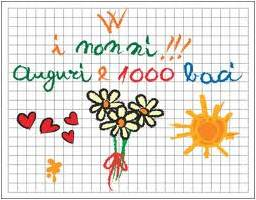 W
i nonni!!!
auguri e 1000 baci